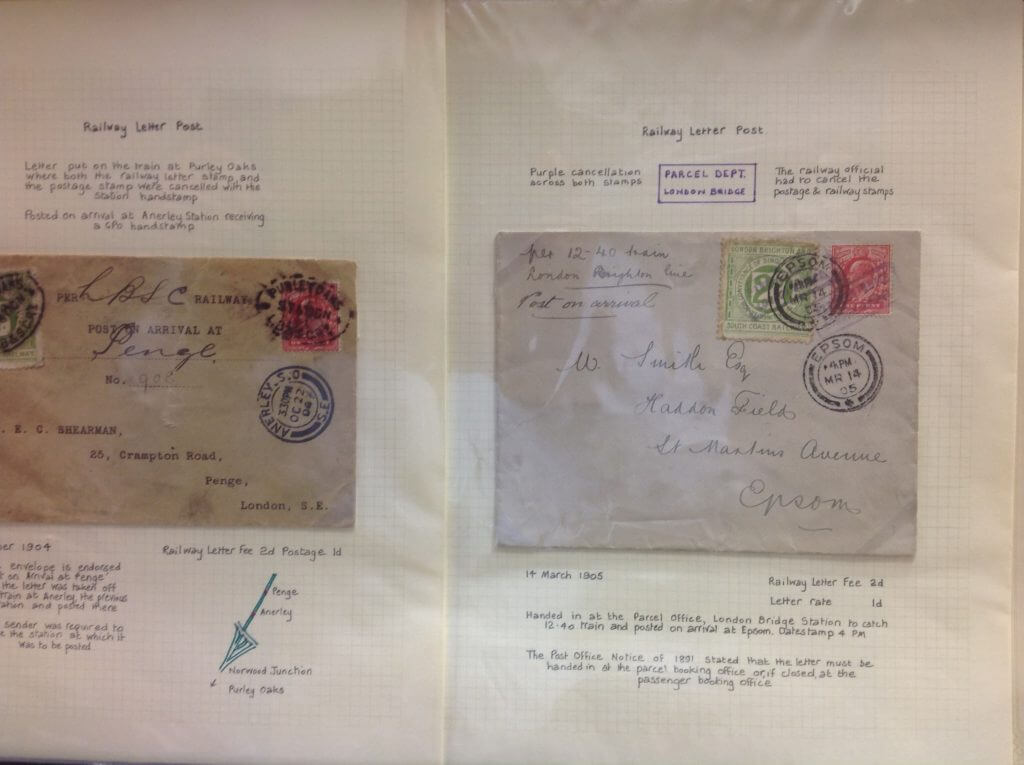 Railway Letter Post
Letter put on the train at Purley Oaks
where both the railway letter stamp, and
the postage stamp were cancelled with the
Station handstamp
Posted on arrival at Anerley Station receiving
a GPO handstamp
PER LBSC RAILWAY
POST ON ARRIVAL AT
Penge
No.
PURLEY OAKS
ANERLEY S.O
3.30PM
OC 22
S.E
. E. C. SHEARMAN,
25, Crampton Road,
Penge,
London, S.E.
ber 1904
Railway Letter Fee 2d Postage 1d
envelope is endorsed
t on Arrival at Penge
the letter was taken off
train at Anerley, the previous
ation and posted there
sender was required to
e the station at which it
was to be posted
Penge
Anerley
Norwood Junction
Purley Oaks
Railway Letter Post
Purple cancellation
across both stamps
PARCEL DEPT.
LONDON BRIDGE
The railway official
had to cancel the
postage & railway stamps
per 12-40 train
London Brighton line
Post on arrival
LONDON BRIGHTON AND
SOUTH COAST RAILWAY
EPSOM
MR 14
05
EPSOM
4 PM
MR 14
05
W. Smith Esq
Haddon Fields
St Martins Avenue
Epsom
14 March 1905
Railway Letter Fee 2d
Letter rate 1d
Handed in at the Parcel Office, London Bridge Station to catch
12.40 train and posted on arrival at Epsom. Datestamp 4 PM
The Post Office Notice of 1891 stated that the letter must be
handed in at the parcel booking office or, if closed, at the
passenger booking office